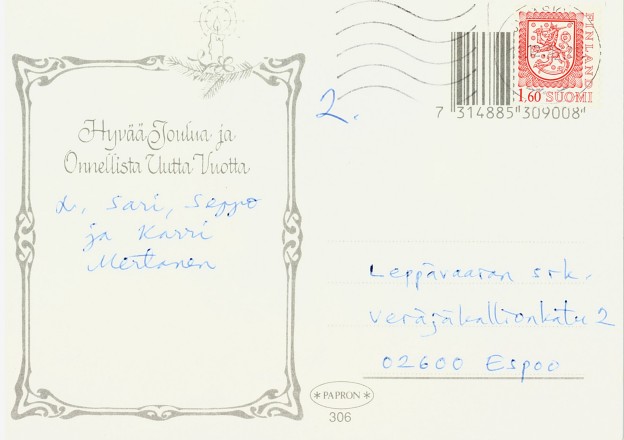 Hyvää Joulua ja
Onnellista Uutta Vuotta
L, Sari, Seppo
ja Karri
Mertanen
2.
FINLAND
1,60 SUOMI
7 314885 309008"
Leppävaaran srk.
Veräjäkallionkatu 2
02600 Espoo
* PAPRON *
306